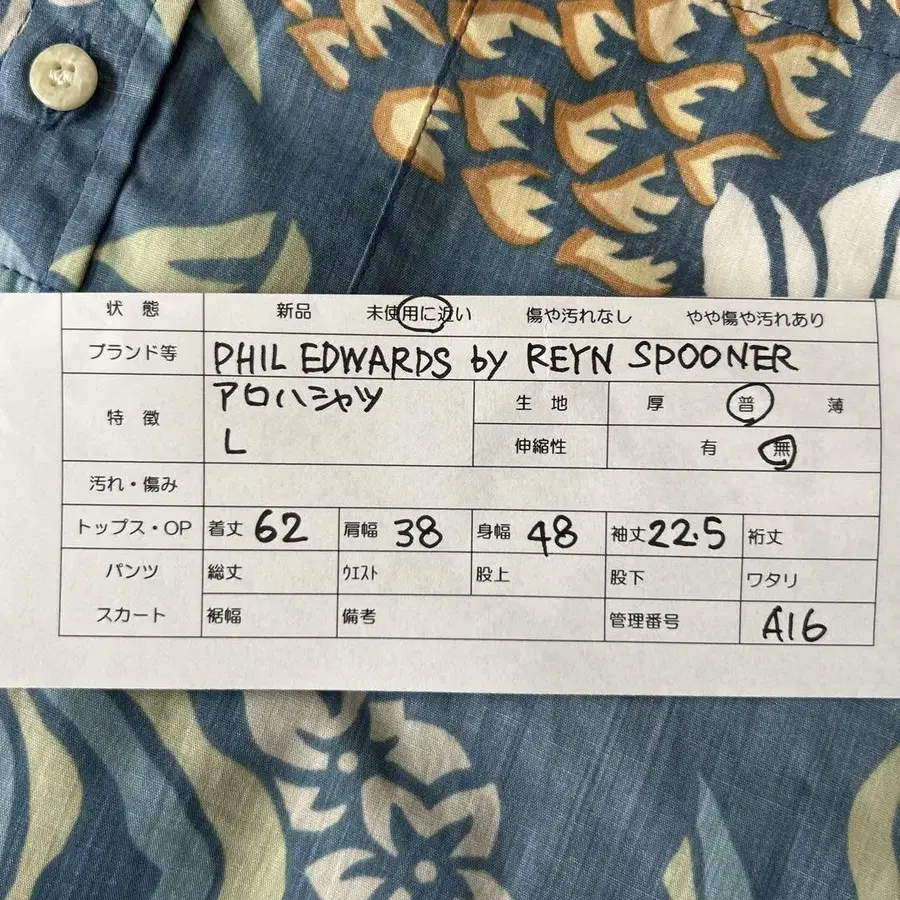 状態 新品 未使用に近い 傷や汚れなし やや傷や汚れあり
ブランド等 PHIL EDWARDS by REYN SPOONER
特徴 アロハシャツ 生地 厚 普 薄
L 伸縮性 有 無
汚れ・傷み
トップス・OP 着丈 62 肩幅 38 身幅 48 袖丈 22.5 裄丈
パンツ 総丈 ウエスト 股上 股下 ワタリ
スカート 裾幅 備考 管理番号 A16